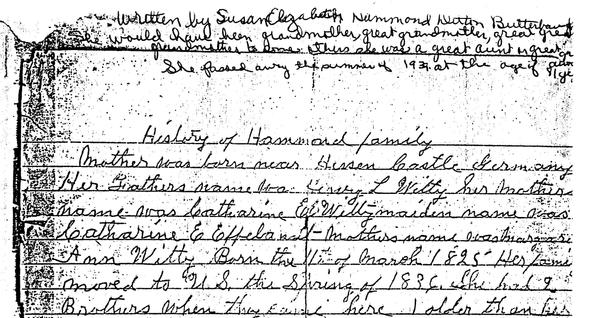 Written by Susan Elizabeth Hammond Hutton Butterbaugh
She would have been grandmother, great grandmother, great great
grandmother to some others she was a great aunt or great
She passed away the summer of 193 at the age of
History of Hammond family
Mother was born near Hessen Castle Germany
Her Fathers name was Henry L Witty her mothers
name was Catharine E Witty maiden name was
Catharine E Effeland Mothers name was Margaret
Ann Witty Born the 11th of March 1825 Her family
moved to U.S. the Spring of 1836. She had 2
Brothers when they came here 1 older than her